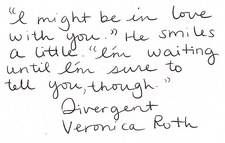 "I might be in love
with you." He smiles
a little. "I'm waiting
until I'm sure to
tell you, though."
Divergent
Veronica Roth